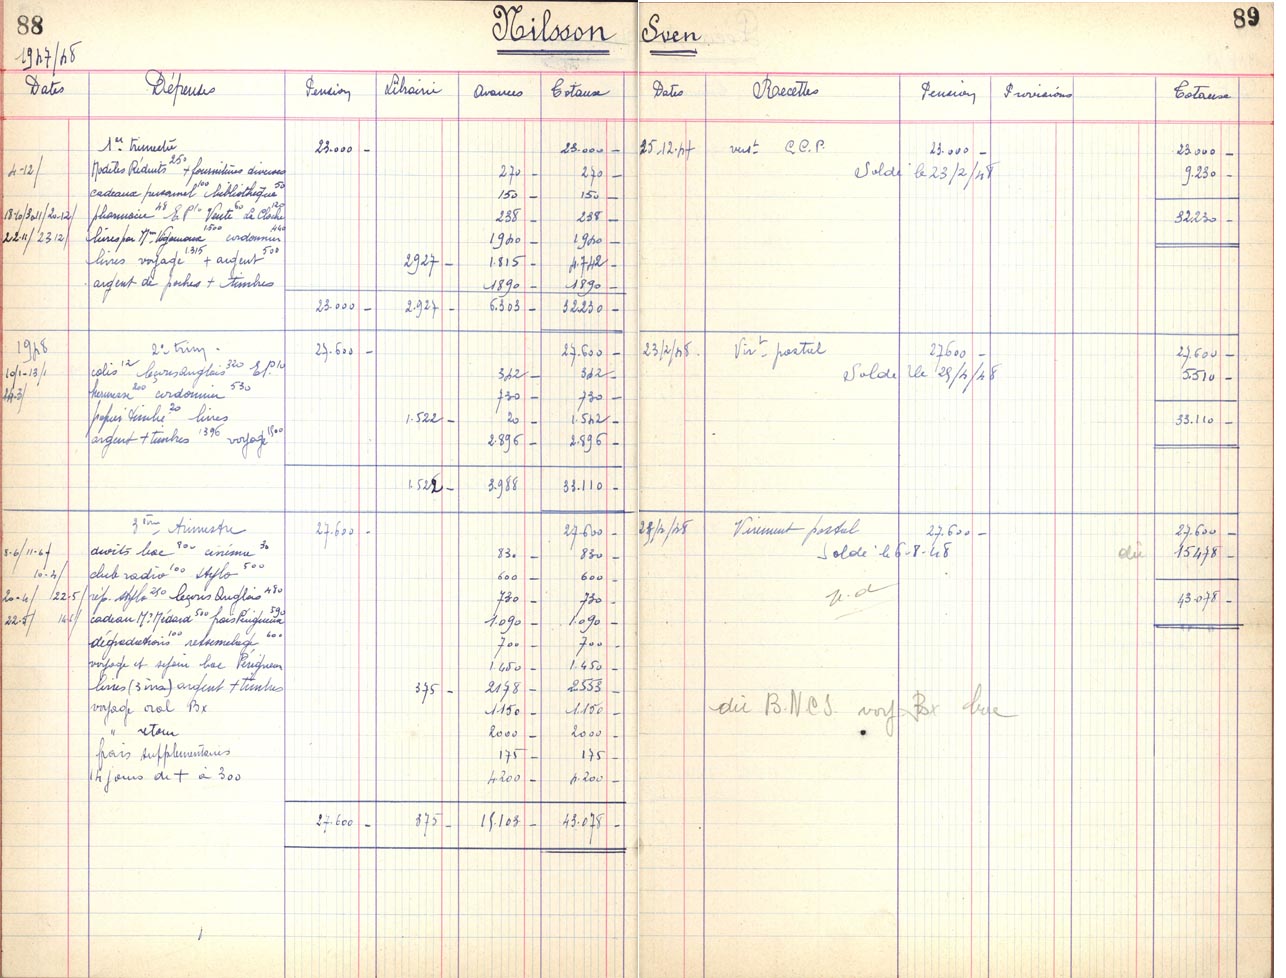 88
Nilsson Sven
89
1947/48
Dates Dépenses Pension Librairie Avances Totaux Dates Recettes Pension Provisions Totaux
1er trimestre 23.000 - 23.000 - 25.12.47 verst C.C.P. 23.000 - 23.000 -
4-12/ Modèles Réduits 250 + fournitures diverses 270 - 270 - Solde le 23/2/48 9.230 -
cadeaux personnel 100 bibliothèque 50 150 - 150 -
18-10/30.11/20-12/ pharmacie 48 E.P 10 Vente 60 La Cloche 120 238 - 238 - 32.230 -
22-11/23 12/ livres par Mme 1500 cordonnier 440 1940 - 1940 -
livres voyage 1315 + argent 500 2927 - 1.815 - 4.742 -
argent de poches + timbres 1890 - 1890 -
23.000 - 2.927 - 6.303 - 32.230 -
1948 2e trim. 27.600 - 27.600 - 23/2/48. Virt postal 27600 - 27.600 -
10/1-13/1 colis 12 leçons anglais 320 E.P. 10 342 - 342 - Solde le 29/4/48 5510 -
24-3/ kermesse 200 cordonnier 530 730 - 730 -
papier timbré 20 livres 1.522 - 20 - 1.542 - 33.110 -
argent + timbres 1396 voyage 1500 2.896 - 2.896 -
1.522 - 3.988 33.110 -
3ème trimestre 27.600 - 27.600 - 29/4/48 Virement postal 27.600 - 27.600 -
8-6/11-6/ droits bac 80- cinéma 30 830 - 830 - Solde le 6-8-48 dû 15478 -
10-4/ club radio 100 stylo 500 600 - 600 -
20-4/ 22-5/ rép. stylo 250 leçons Anglais 480 730 - 730 - 43.078 -
22-5/ cadeau Mr Médard 500 frais Périgueux 590 1.090 - 1.090 -
dégradations 100 ressemelage 600 700 - 700 -
voyage et séjour bac Périgueux 1.450 - 1.450 -
livres (3 ins) argent + timbres 375 - 2178 - 2553 -
voyage oral Bx 1.150 - 1.150 - dû B.N.C.I. voy Bx bac
" retour 2000 - 2000 -
frais supplémentaires 175 - 175 -
14 jours de + à 300 4200 - 4.200 -
27.600 - 375 - 15.103 - 43.078 -